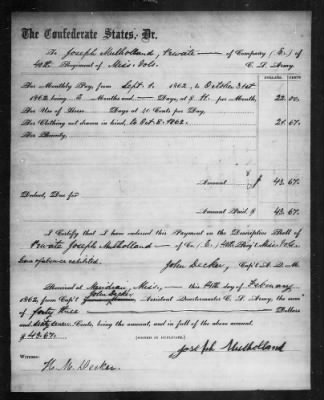 The Confederate States, Dr.
To Joseph Mulholland, Private of Company (E.) of
40th Regiment of Miss. Vols. C. S. Army.
DOLLARS. CENTS
For Monthly Pay, from Sept. 1. 1862, to October 31st
1862 being 2 Months Days, at $ 11. per Month, 22 00.
For Use of Horse Days, at 40 Cents per Day,
For Clothing not drawn in kind, to Oct. 8. 1862. 21 67.
For Bounty,
Amount $ 43 67.
Deduct, Due for
Amount Paid, $ 43 67.
I Certify that I have indorsed this Payment on the Descriptive Roll of
Private Joseph Mulholland of Co. (E.) 40th Reg't Miss. Vols.
exhibited.
John Decker, Capt. A. Q. M.
Received at Meridian, Miss., this 14th day of February
John Decker
1862, from Cap't Assistant Quartermaster C. S. Army, the sum
of forty three Dollars
and sixty seven Cents, being the amount, and in full of the above account.
$ 43.67. [SIGNED IN DUPLICATE.]
Joseph Mulholland
Witness:
H. M. Decker.